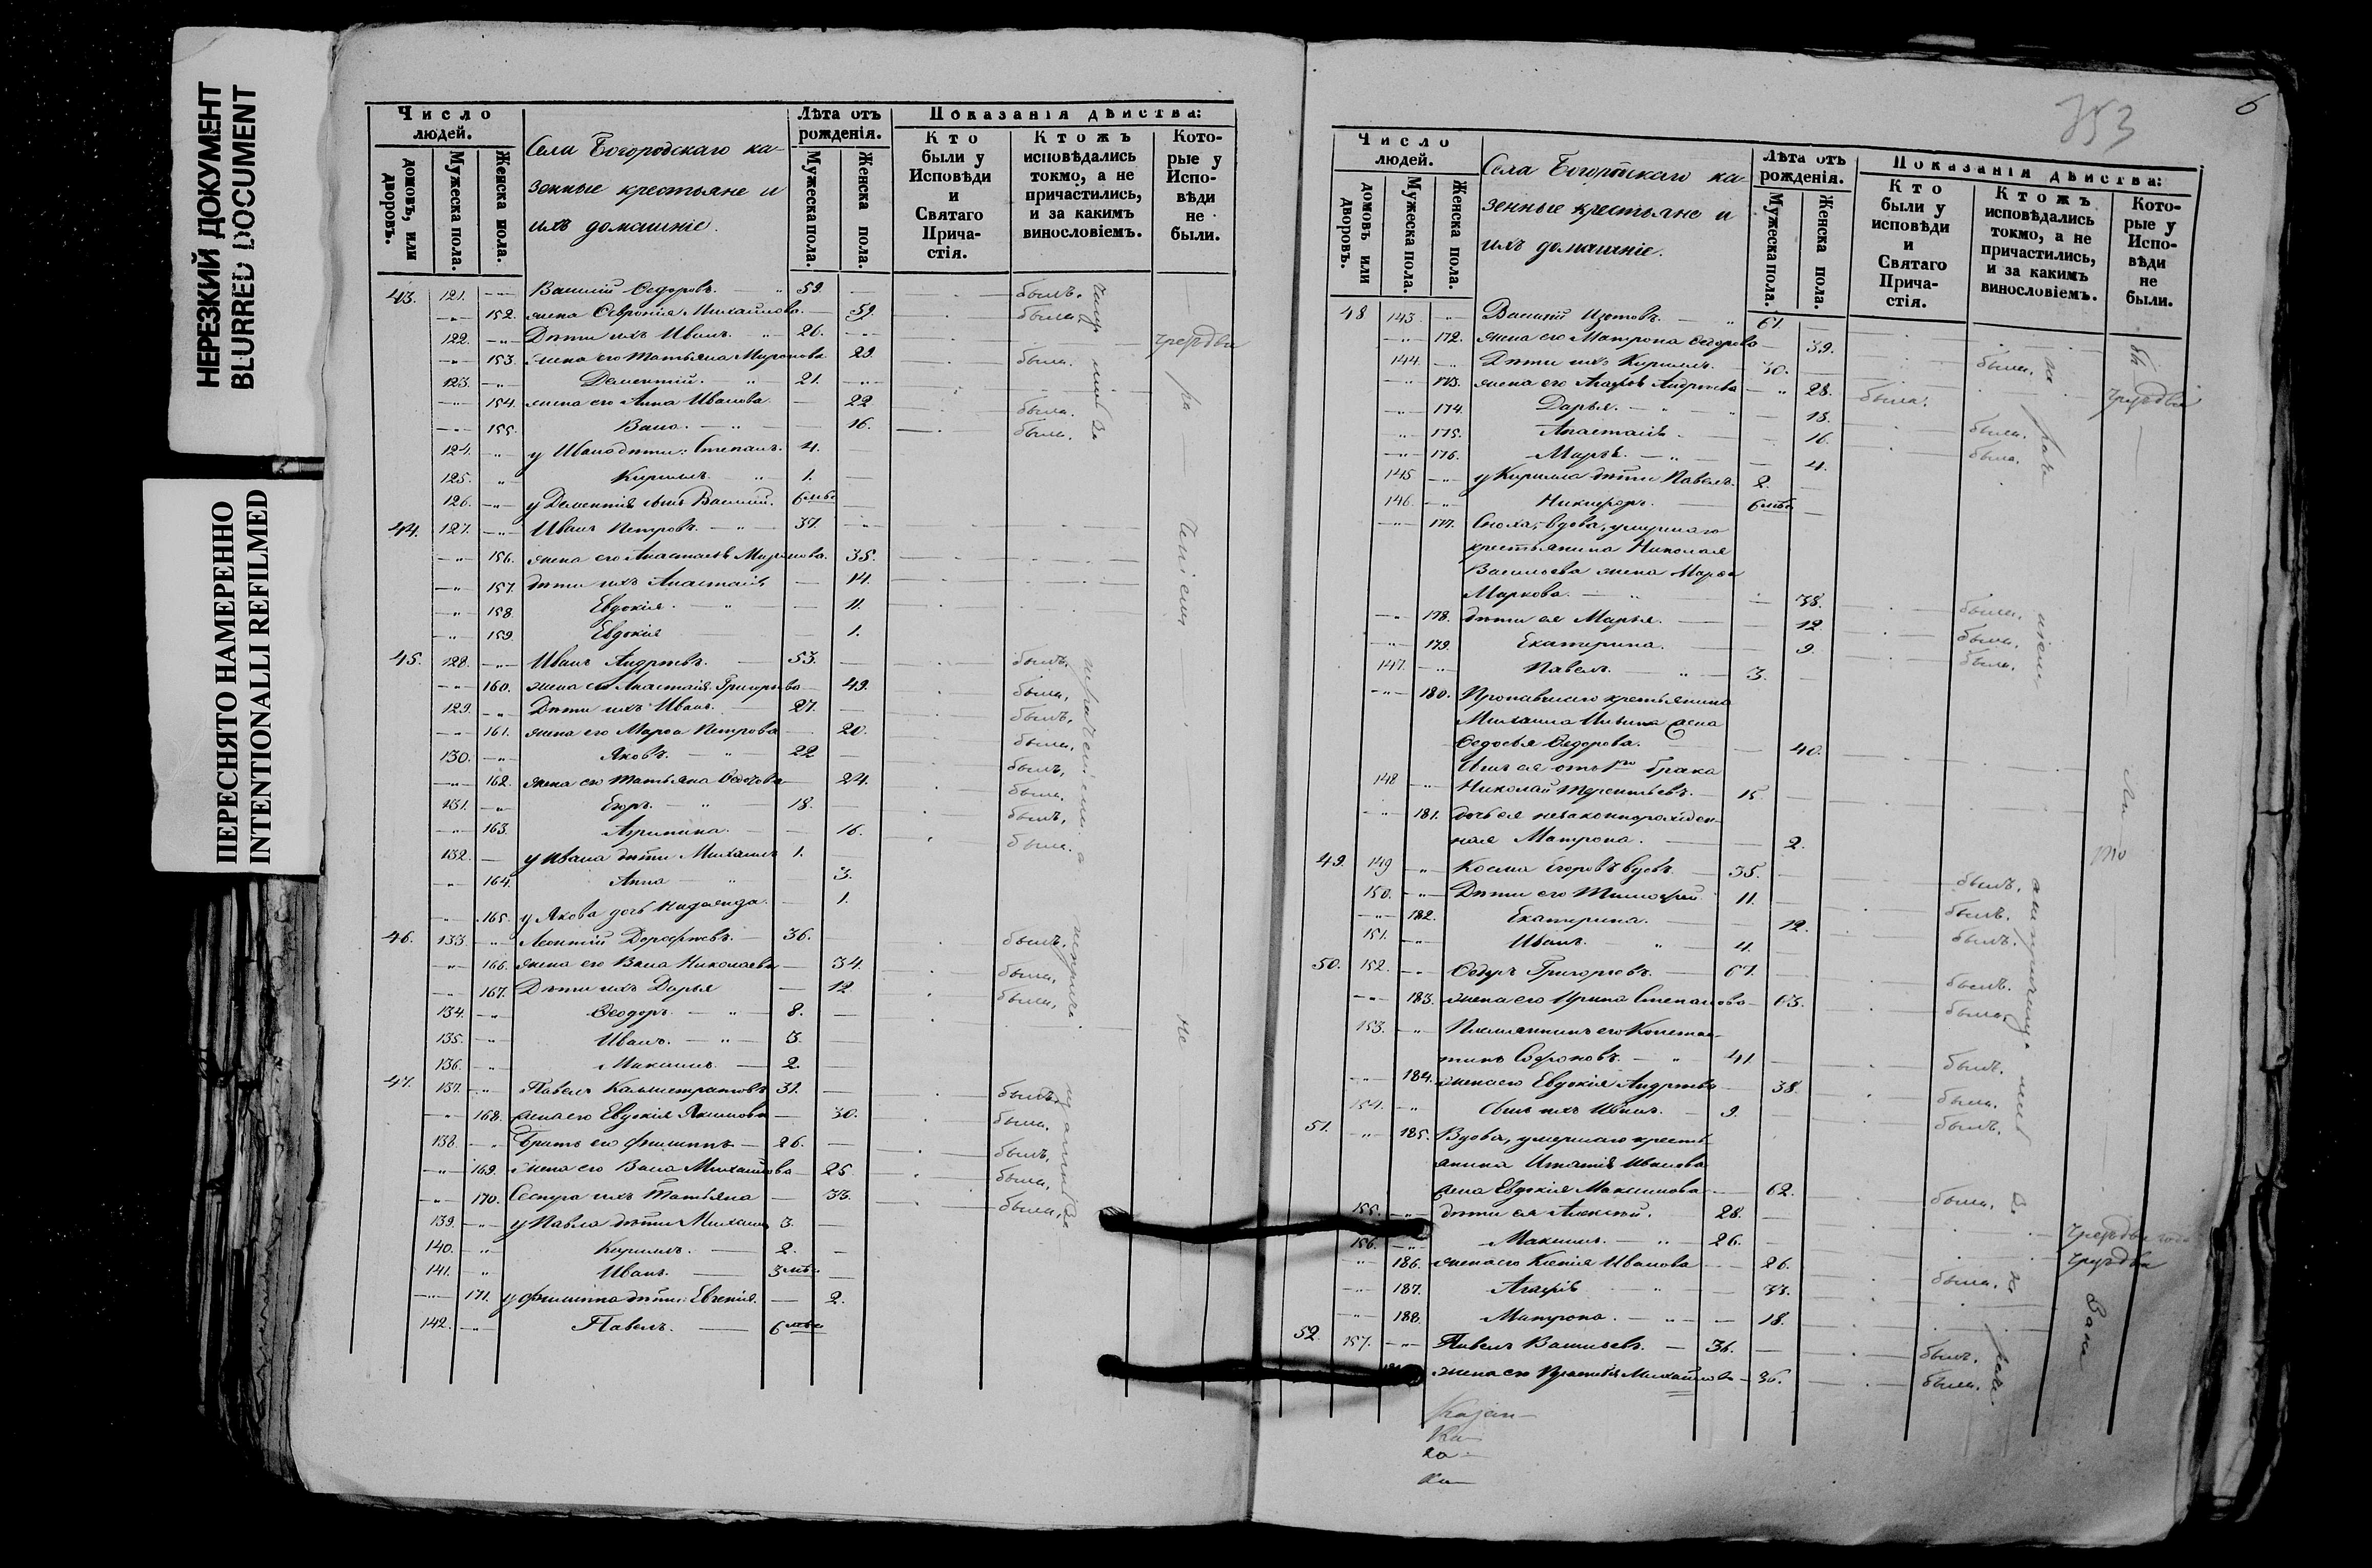 НЕРЕЗКИЙ ДОКУМЕНТ
BLURRED DOCUMENT
ПЕРЕСНЯТО НАМЕРЕННО
INTENTIONALLI REFILMED
Число людей.
домовъ, или дворовъ.
Мужеска пола.
Женска пола.
Села Богородскаго ка-
зенные крестьяне и
ихъ домашніе.
Лѣта отъ рожденія.
Мужеска пола.
Женска пола.
Показанія дѣйства:
Кто были у Исповѣди и Святаго Прича-стія.
Ктожъ исповѣдались токмо, а не причастились, и за какимъ винословіемъ.
Кото-рые у Испо-вѣди не были.
43. 121. Василій Ѳедоровъ. 59. былъ.
152. жена Ѳевронія Михайлова. 59. была.
122. Дѣти ихъ Иванъ. 26.
153. жена его Татьяна Миронова 29. была.
123. Дементій. 21.
154. жена его Анна Иванова. 22 была.
155. Васса. 16. была.
124. у Ивана дѣти: Степанъ. 4.
125. Кириллъ. 1.
126. у Дементія сынъ Василій. 6 мѣс
44. 127. Иванъ Петровъ. 37.
156. жена его Анастасія Миронова. 35.
157. дѣти ихъ Анастасія 14.
158. Евдокія. 11.
159. Евдокія 1.
45. 128. Иванъ Андреевъ. 53. былъ.
160. жена его Анастасія Григорьева 49. была.
129. Дѣти ихъ Иванъ. 27. былъ.
161. жена его Марѳа Петрова 20. была.
130. Яковъ. 22 былъ.
162. жена его Татьяна Ѳедотова 24. была.
131. Егоръ. 18. былъ.
163. Агрипина. 16. была.
132. у Ивана дѣти Михаилъ 1.
164. Анна 3.
165. у Якова дочь Надежда. 1.
46. 133. Леонтій Дороѳеевъ. 36. былъ.
166. жена его Васса Николаева 34. была.
167. Дѣти ихъ Дарья 12 была.
134. Ѳеодоръ. 8.
135. Иванъ. 3.
136. Михаилъ. 2.
47. 137. Павелъ Калистратовъ 31. былъ.
168. жена его Евдокія Якимова 30. была.
138. Братъ его Филиппъ 26. былъ.
169. жена его Васса Михайлова 25. была.
170. Сестра ихъ Татьяна 33. была.
139. у Павла дѣти Михаилъ 3.
140. Кириллъ. 2.
141. Иванъ. 3 мѣс
171. у Филиппа дѣти: Евгенія. 2.
142. Павелъ. 6 мѣс
353
6
Число людей.
домовъ или дворовъ.
Мужеска пола.
Женска пола.
Села Богородскаго ка-
зенные крестьяне и
ихъ домашніе.
Лѣта отъ рожденія.
Мужеска пола.
Женска пола.
Показанія дѣйства:
Кто были у исповѣди и Святаго Прича-стія.
Ктожъ исповѣдались токмо, а не причастились, и за какимъ винословіемъ.
Кото-рые у Испо-вѣди не были.
48 143. Василій Изотовъ. 61.
172. жена его Матрона Ѳедорова 39. была.
144. Дѣти ихъ Кириллъ. 30.
173. жена его Агафья Андреева 28. была.
174. Дарья. 18. была.
175. Анастасія. 16. была.
176. Марья. 4.
145 у Кирилла дѣти Павелъ. 2.
146. Никифоръ. 6 мѣс
177. Сноха, вдова, умершаго
крестьянина Николая
Васильева жена Марья
Маркова. 38. была.
178. дѣти ея Марья. 12. была.
179. Екатерина. 9. была.
147. Павелъ. 3.
180. Пропавшаго крестьянина
Михаила Ильина жена
Ѳедосья Ѳедорова. 40.
148 Сынъ ея отъ 1го брака
Николай Терентьевъ. 15.
181. дочь ея незаконнорожден-
ная Матрона. 2.
49. 149 Косма Егоровъ вдовъ. 35. былъ.
150. Дѣти его Тимофей 11. былъ.
182. Екатерина. 12. былъ.
151. Иванъ. 4.
50. 152. Ѳедоръ Григорьевъ. 67. былъ.
183. жена его Ирина Степанова 63. была.
153. Племянникъ его Констан-
тинъ Софроновъ. 41. былъ.
184. жена его Евдокія Андреева 38. была.
154. Сынъ ихъ Иванъ. 9. былъ.
51. 185. Вдова, умершаго кресть-
янина Игнатія Иванова
жена Евдокія Максимова 62. была.
155. дѣти ея Алексѣй. 28.
156. Максимъ. 26.
186. жена его Ксенія Иванова 26. была.
187. Агафія 33.
188. Матрона. 18.
52. 157. Павелъ Васильевъ. 36. былъ.
жена его Михайлова 36. была.